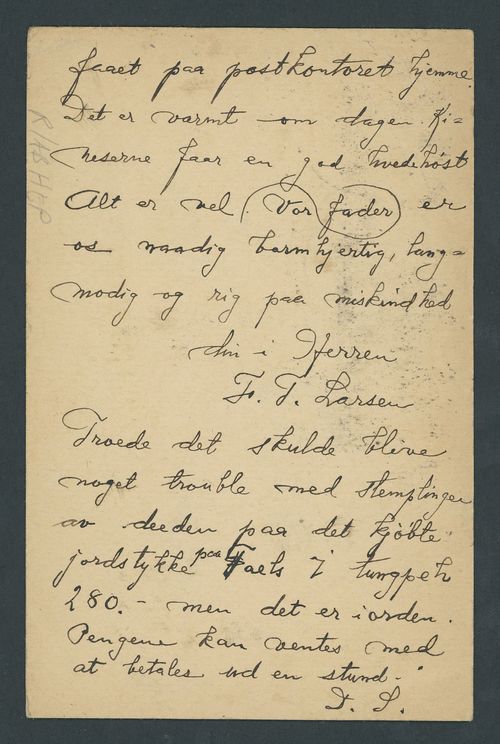 faaet paa postkontoret hjemme.
Det er varmt om dagen. Ki=
neserne faar en god hvedehöst
Alt er vel. Vor fader er
os naadig barmhjertig, lang=
modig og rig paa miskindhed
din i Herren
F. T. Larsen
Troede det skulde blive
noget trouble med stemplingen
av deeden paa det kjöbte
jordstykke paa Taels i tungpeh
280.- men det er i orden.
Pengene kan ventes med
at betales ud en stund.